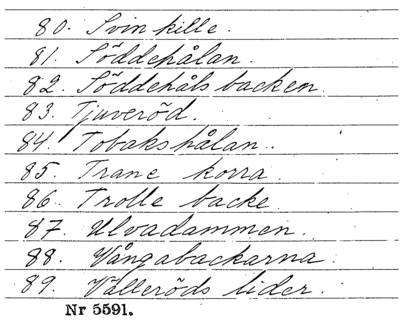 80. Svinkille.
81. Söddehålan.
82. Söddehåls backen.
83. Tjuveröd.
84. Tobakshålan.
85. Trane korra
86. Trolle backe
87. Ulvadammen.
88. Vångabackarna.
89. Välleröds lider.
Nr 5591.